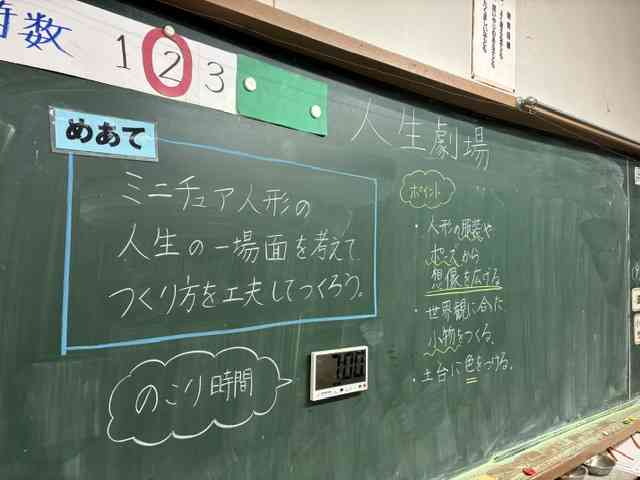 時数 1 2 3
めあて
人生劇場
ミニチュア人形の
人生の一場面を考えて
つくり方を工夫してつくろう。
ポイント
・人形の服装や
ポーズから
想像を広げる
・世界観に合った
小物をつくる。
・土台に色をつける。
のこり時間
7:00